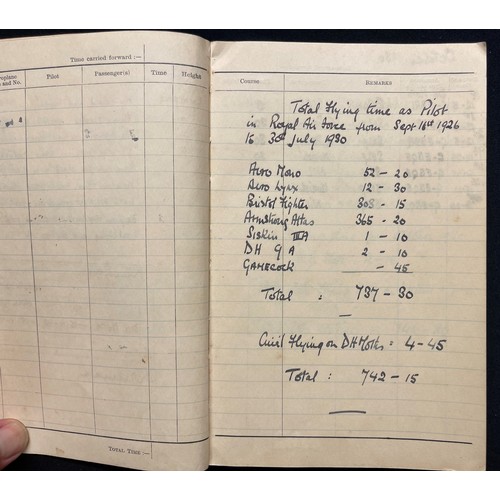 Time carried forward :—
Aeroplane and No. Pilot Passenger(s) Time Heights
Course REMARKS
Total Flying time as Pilot
in Royal Air Force from Sept 16th 1926
to 30th July 1930
Avro Mono 52 - 20
Avro Lynx 12 - 30
Bristol Fighter 303 - 15
Armstrong Atlas 365 - 20
Siskin IIIA 1 - 10
DH 9 A 2 - 10
GAMECOCK - 45
Total = 737 - 30
Civil Flying on DH Moths = 4 - 45
Total : 742 - 15
TOTAL TIME :—